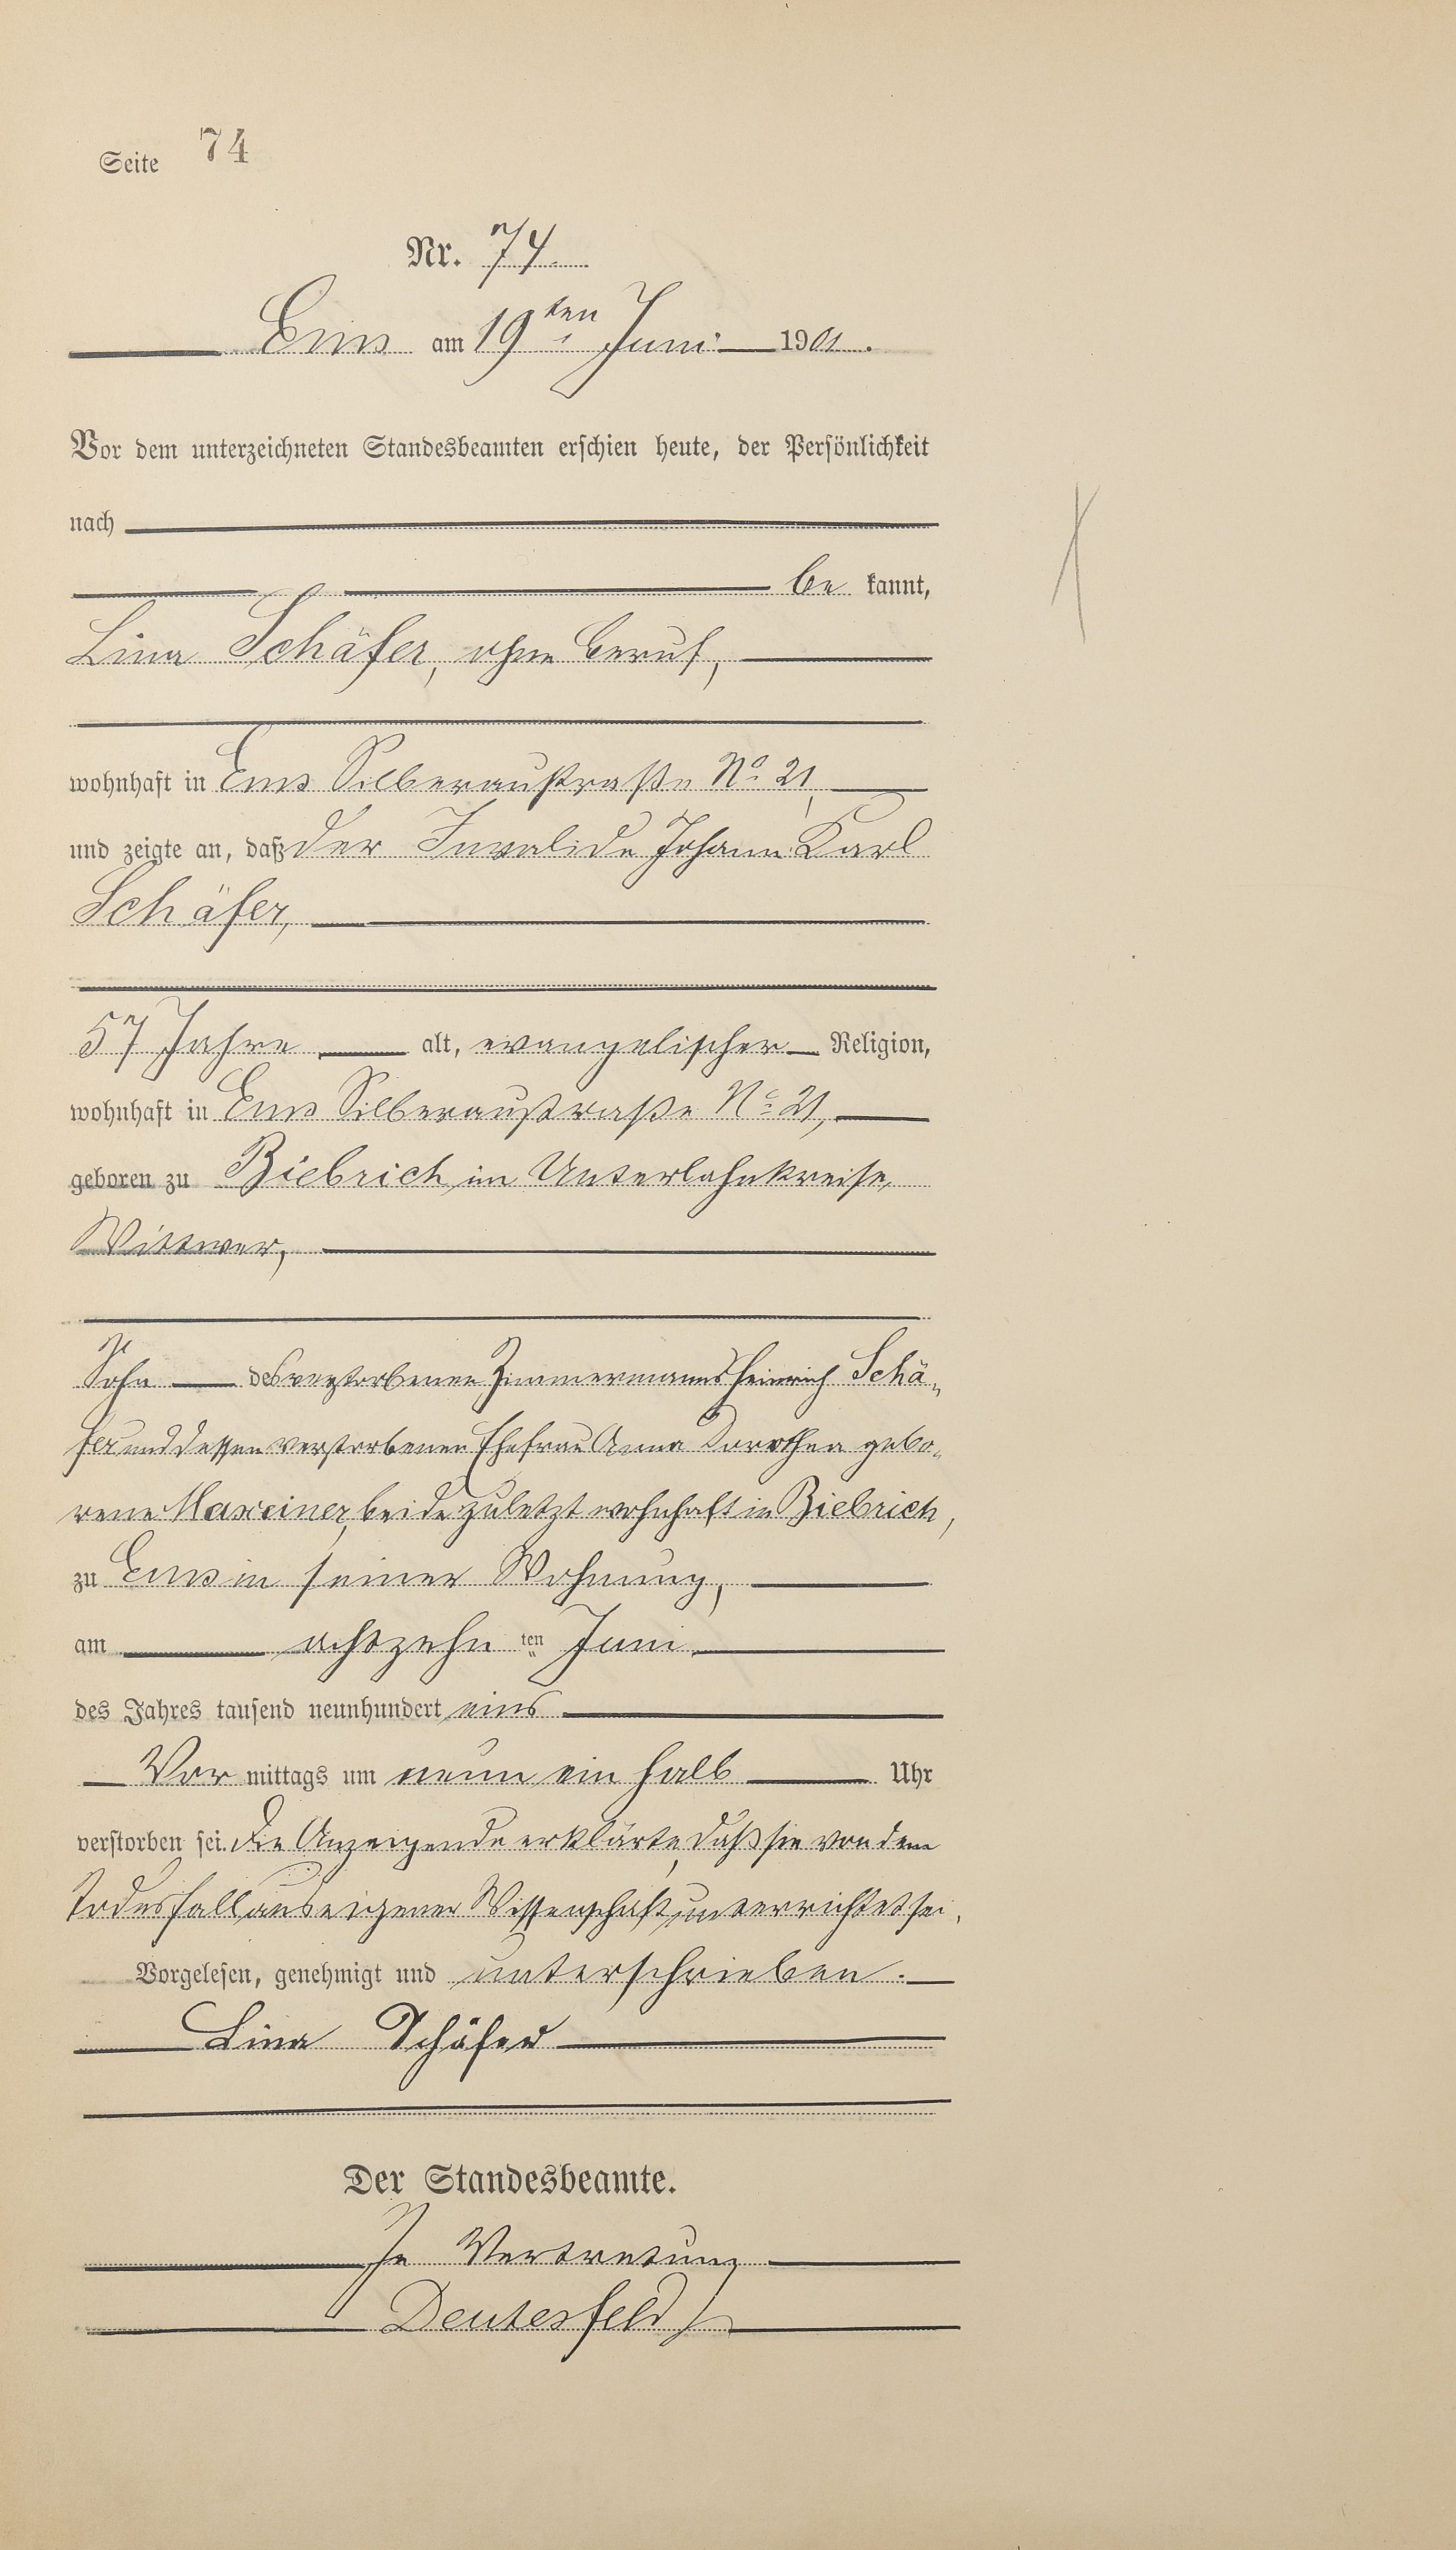 Seite 74
Nr. 74.
Ems am 19ten Juni 1901.
Vor dem unterzeichneten Standesbeamten erschien heute, der Persönlichkeit
nach
be kannt,
Lina Schäfer, ohne Beruf,
wohnhaft in Ems Silberaustraße No 21,
und zeigte an, daß der Invalide Johann Karl
Schäfer,
57 Jahre alt, evangelischer Religion,
wohnhaft in Ems Silberaustraße No 21,
geboren zu Biebrich im Unterlahnkreise,
Wittwer,
Sohn des verstorbenen Zimmermanns Heinrich Schä-
fer und dessen verstorbenen Ehefrau Anna Dorothea gebo-
rene Maxeiner, beide zuletzt wohnhaft in Biebrich,
zu Ems in seiner Wohnung,
am achtzehn ten Juni
des Jahres tausend neunhundert eins
Vor mittags um neun ein halb Uhr
verstorben sei. Die Anzeigende erklärte, daß sie von dem
Todesfall aus eigener Wissenschaft unterrichtet sei.
Vorgelesen, genehmigt und unterschrieben.
Lina Schäfer
Der Standesbeamte.
In Vertretung
Deutesfeld